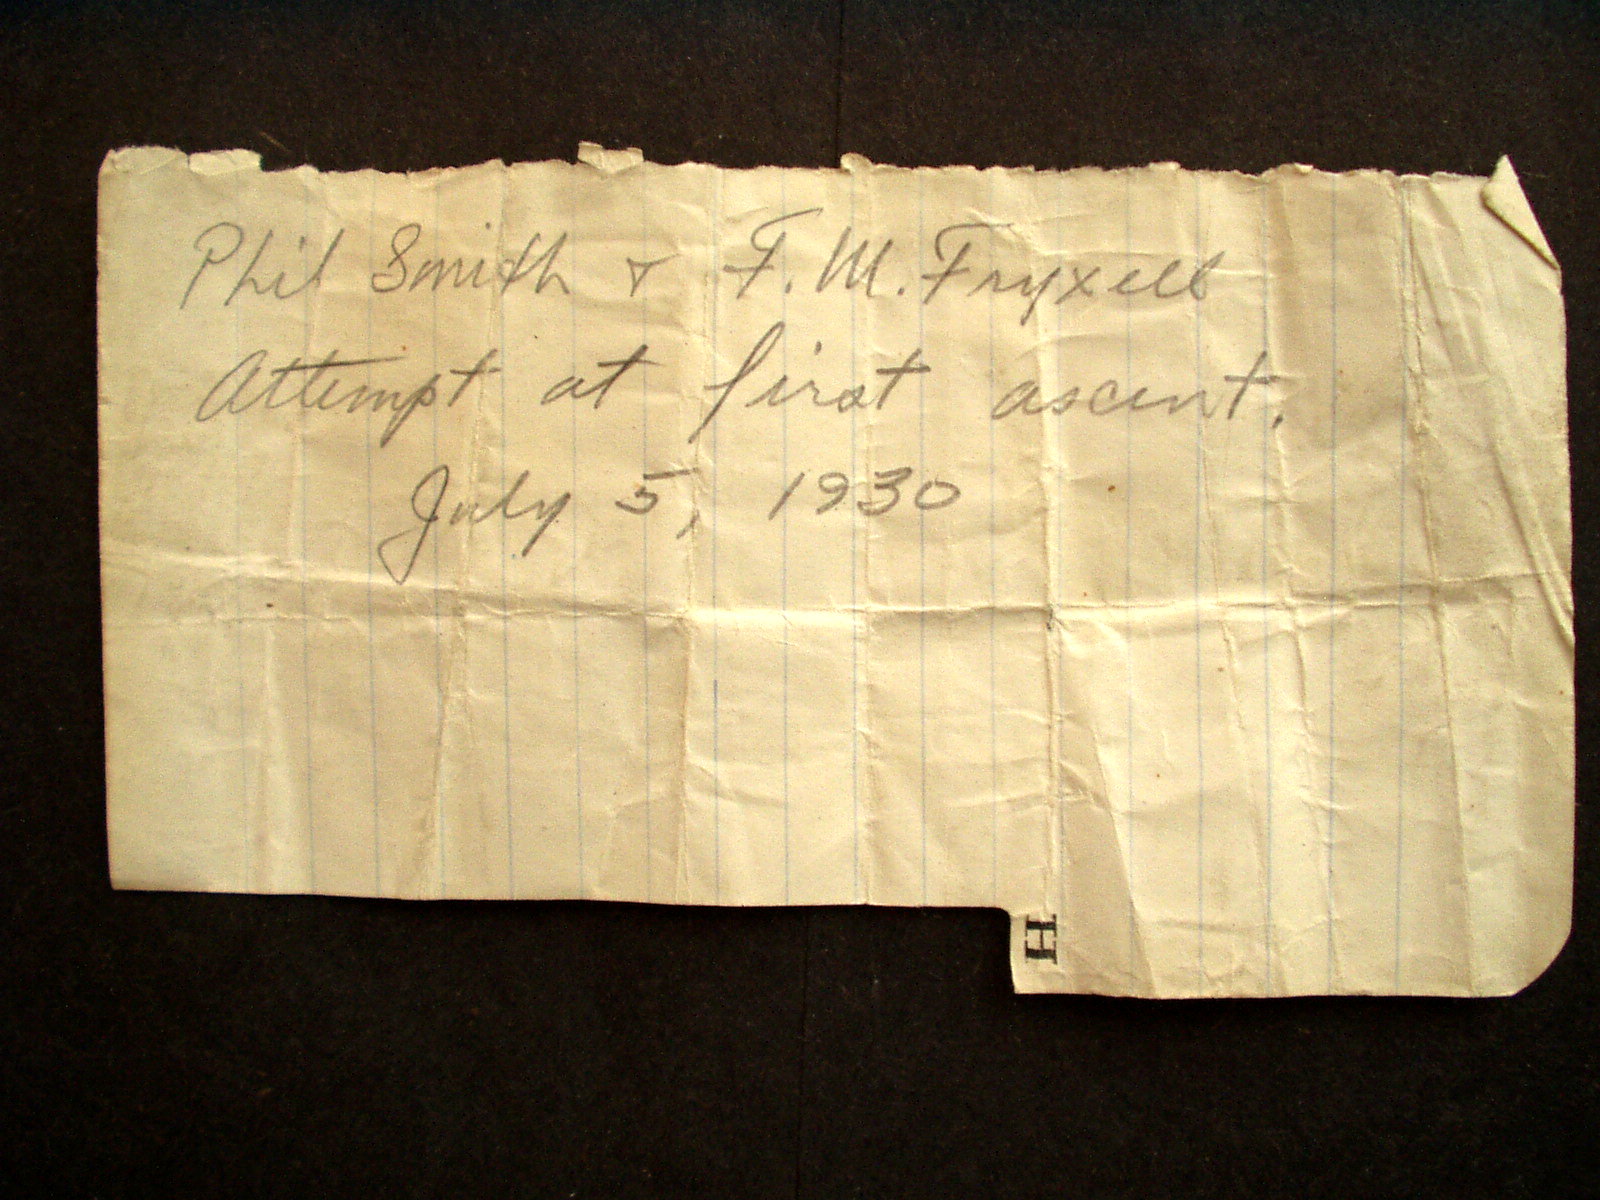 Phil Smith & F. M. Fryxell
Attempt at first ascent.
July 5, 1930
H